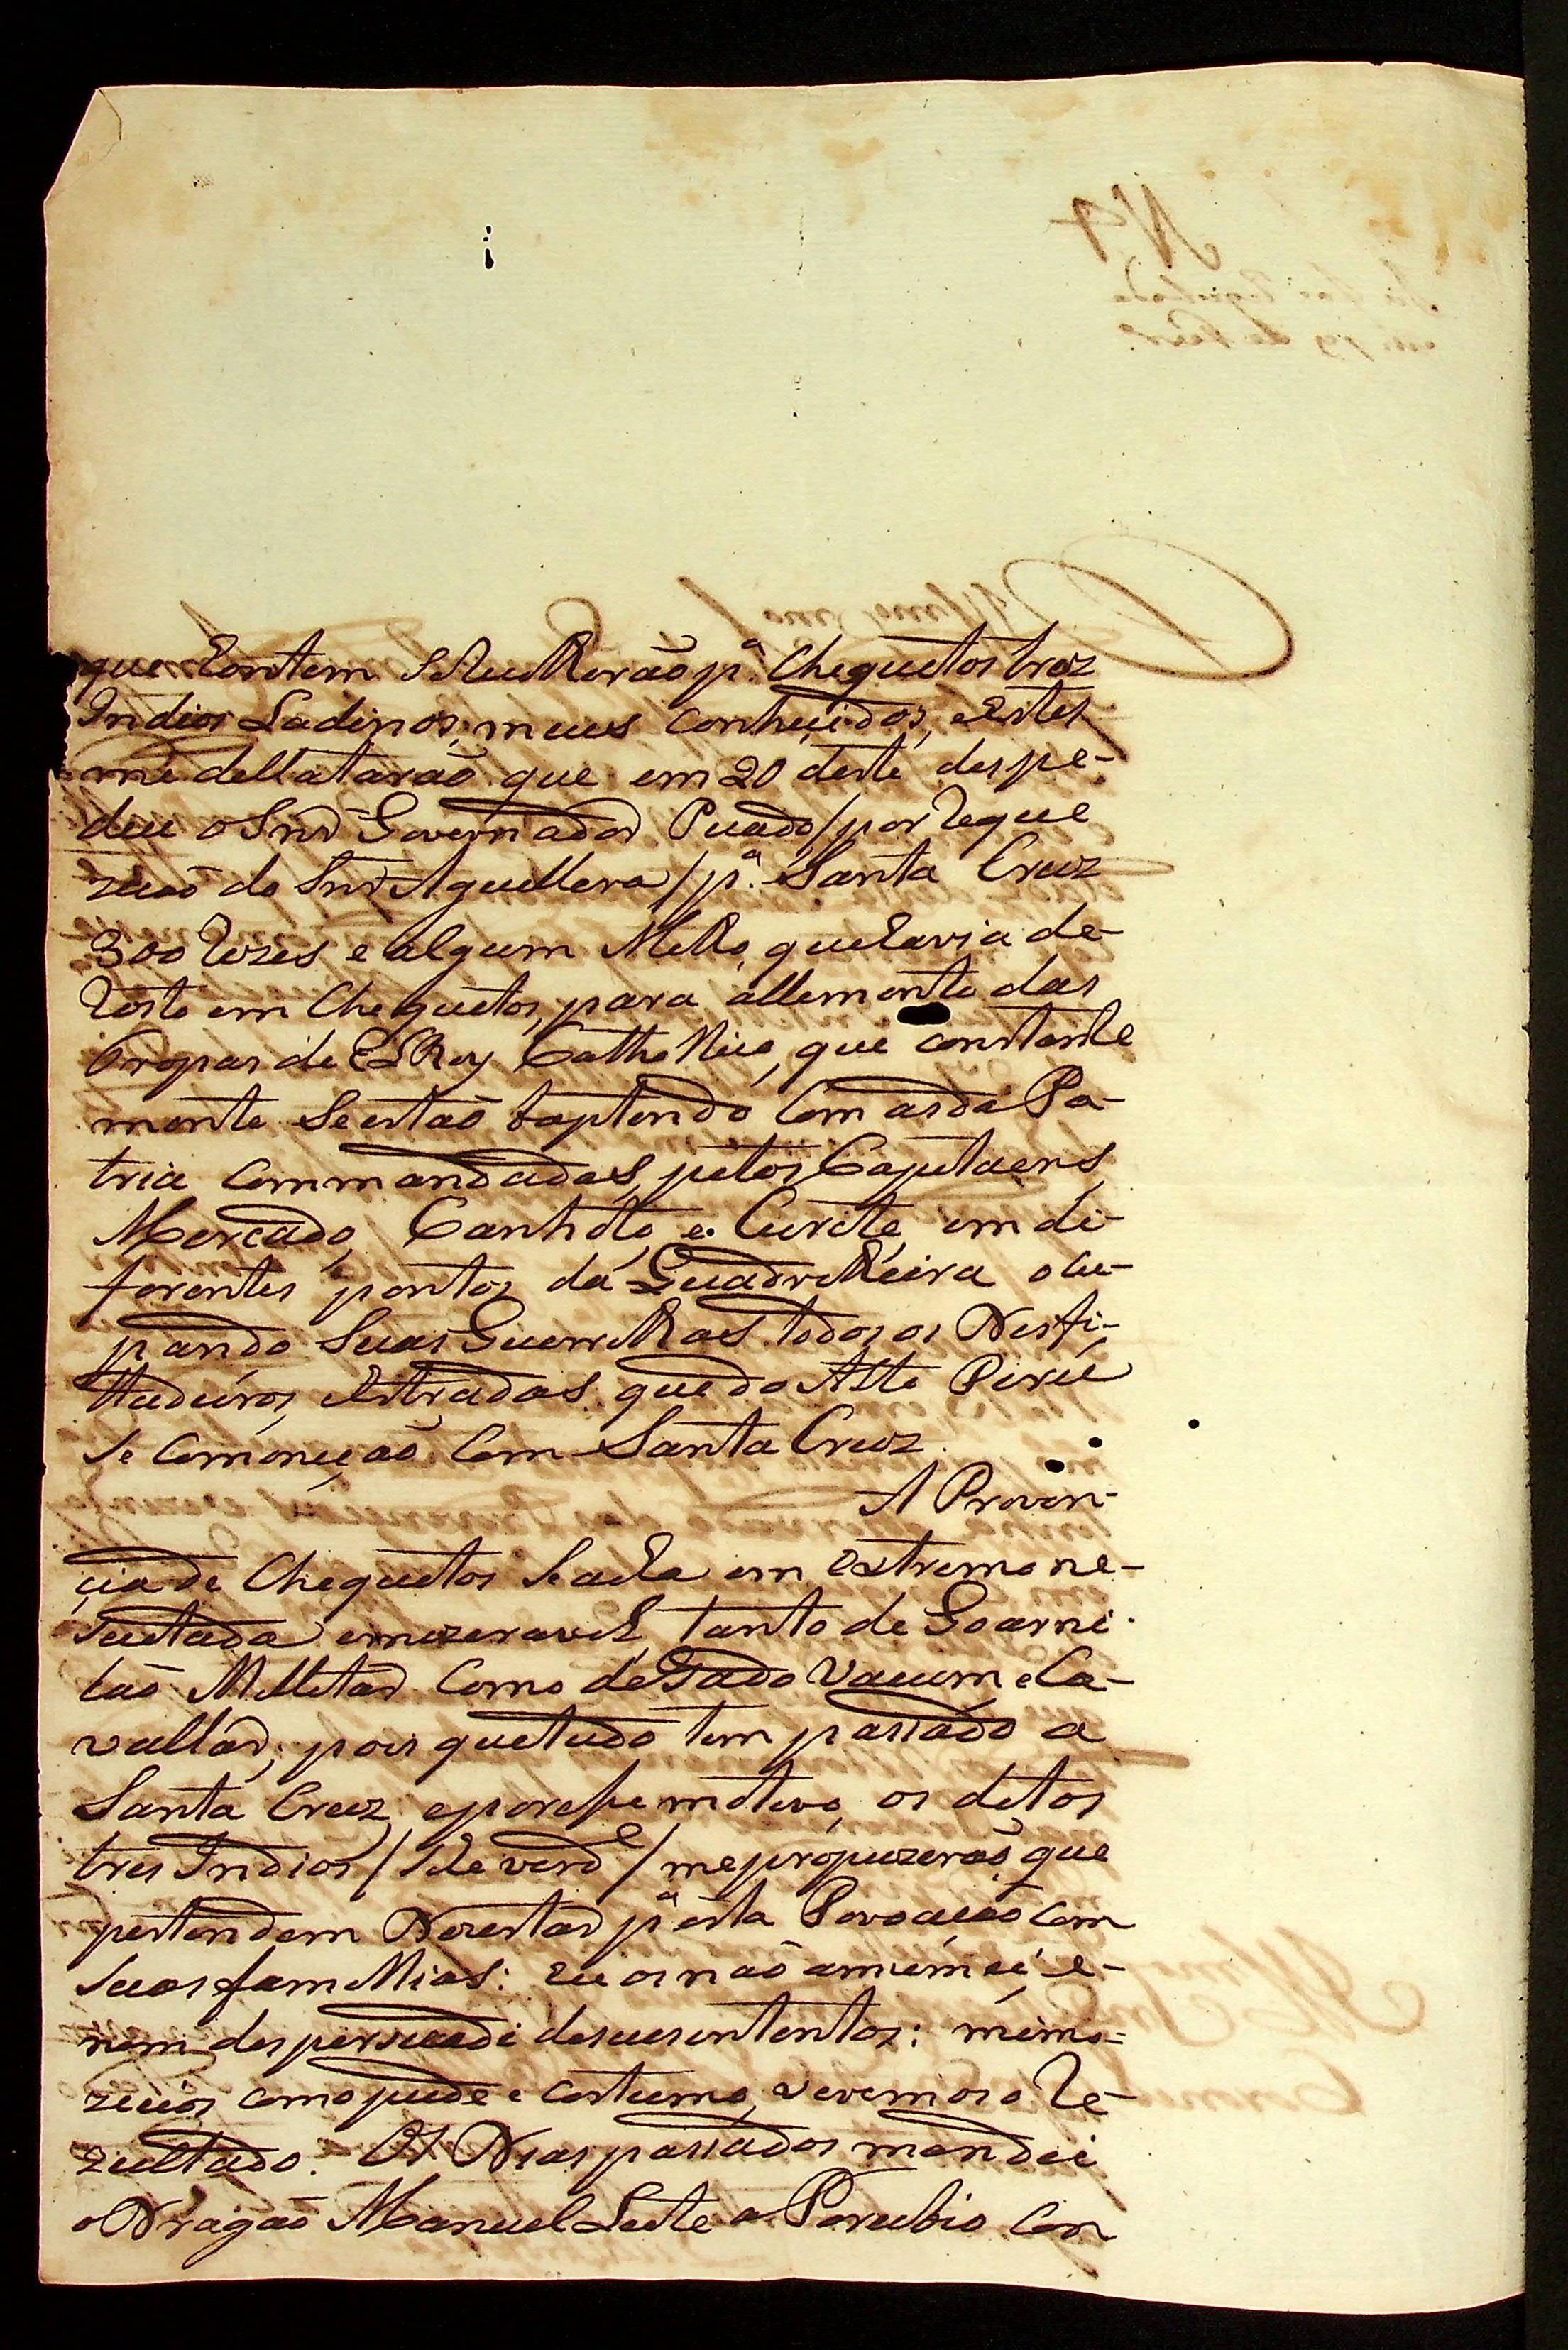 que Hontem Se recolherão pª. Chequitos trez
Indios Ladinos, meus conheçidos, e estes
me dellatarão que em 20 deste despe-
diu o Snr̃ Governador Picado / por reque
zicaõ do Snr̃ Aguillera / pª. Santa Cruz
300 rezes e algum Milho, que havia de
resto em Chequitos, para allemento das
tropas de ElRey Catholico, que constante
mente se estaõ baptendo Com as da Pa-
tria Commandadas pelos Capitaens
Mercado, Canhoto, e Curite, em di-
ferentes pontos da Quadrilheira ocu-
pando Suas Guerrilhas todos os Desfi-
lladeiros, estradas que do Alto Pirú
se comoneçaõ Com Santa Cruz.
A Proven-
çia de Chequitos Se acha em extremo ne-
çecitada emezeravel, tanto de Goarni-
çaõ Militar Como de Gado Vacum, e Ca-
vallar, pois que tudo tem passado a
Santa Cruz, e por esse motivo, os ditos
tres Indios / Se he verdᵉ / me propuzeraõ que
pertendem Dezertar pª. esta Povoaçaõ com
Suas famillias: eu os naõ animei, e
nem despersuadi de seus intentos: mimo-
zeios como pude e costumo, veremos o Re-
zultado. Os Dias passados mandei
o Dragaõ Manuel Leite a Porubio Con
N 4